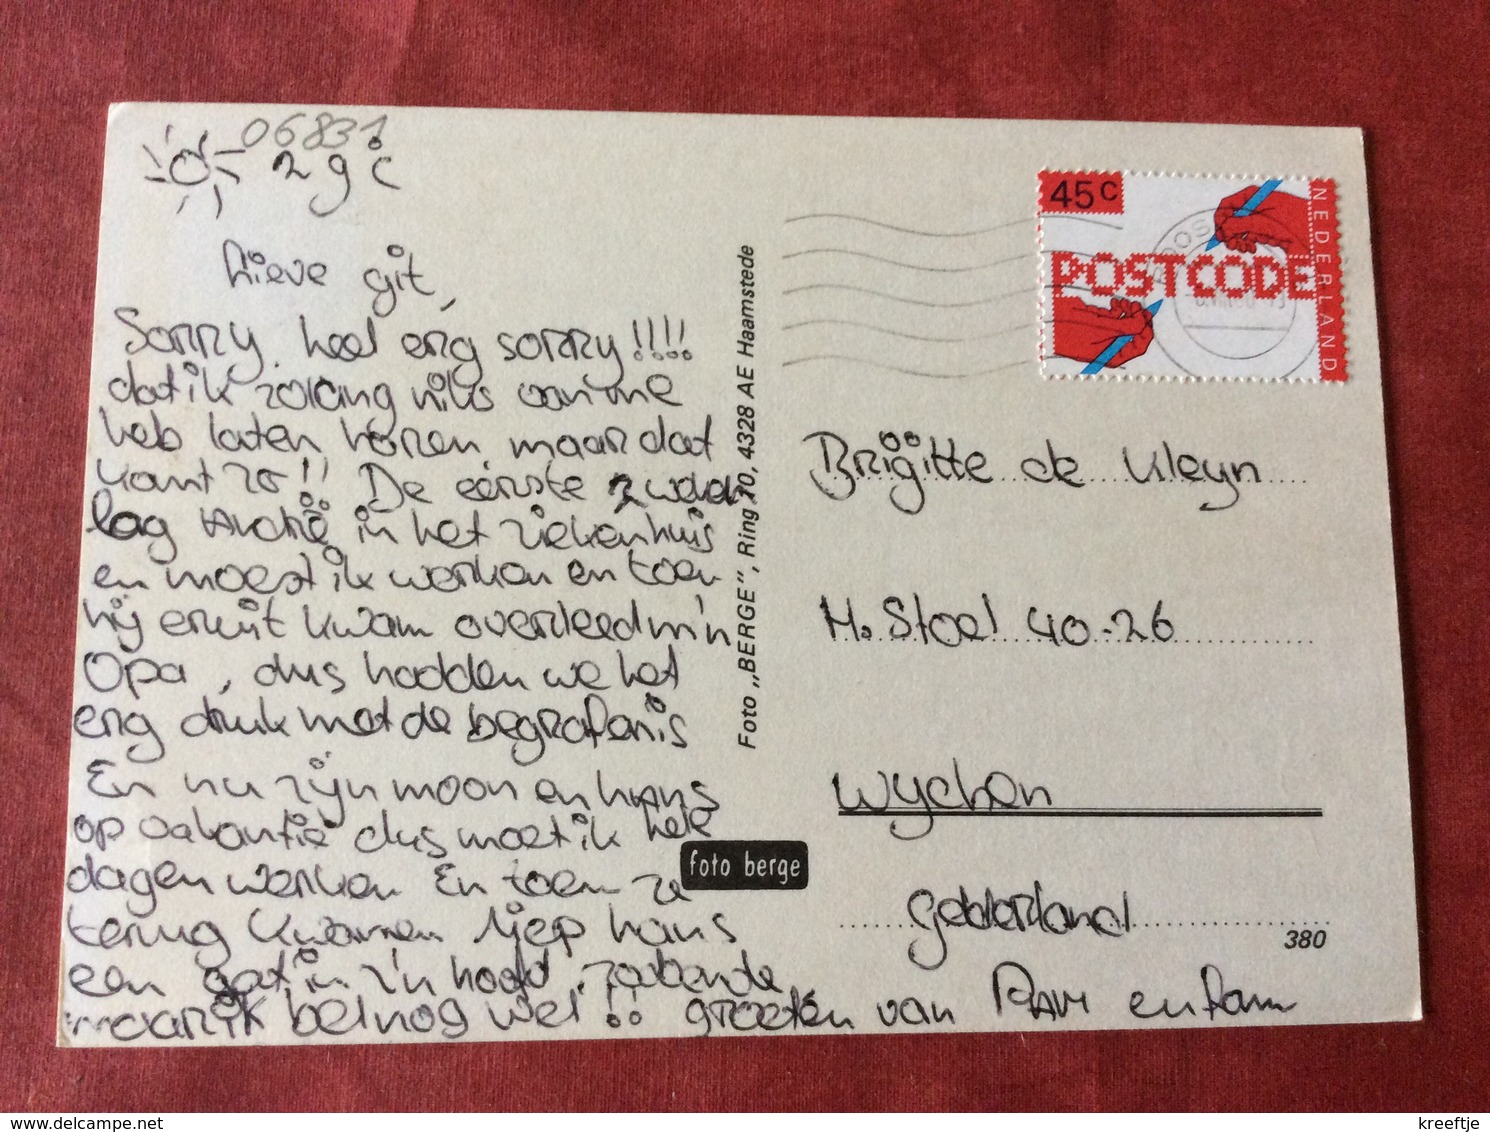 06831
29°C
Lieve Git,
Sorry heel erg sorry!!!!
dat ik zolang niks van me
heb laten horen, maar dat
kwam zo!! De eerste 2 weken
lag André in het ziekenhuis
en moest ik werken en toen
hij eruit kwam overleed m'n
Opa, dus hadden we het
erg druk met de begrafenis
En nu zijn moon en hans
op vakantie dus moet ik hele
dagen werken En toen ze
terug kwamen liep hans
een gat in z'n hoofd.
maar ik bel nog wel!! groeten van Ram en fam
Foto „BERGE", Ring 70, 4328 AE Haamstede
foto berge
45c
POSTCODE
NEDERLAND
Brigitte de Kleyn
H. Stoel 40-26
Wychen
Gelderland
380
kreeftje